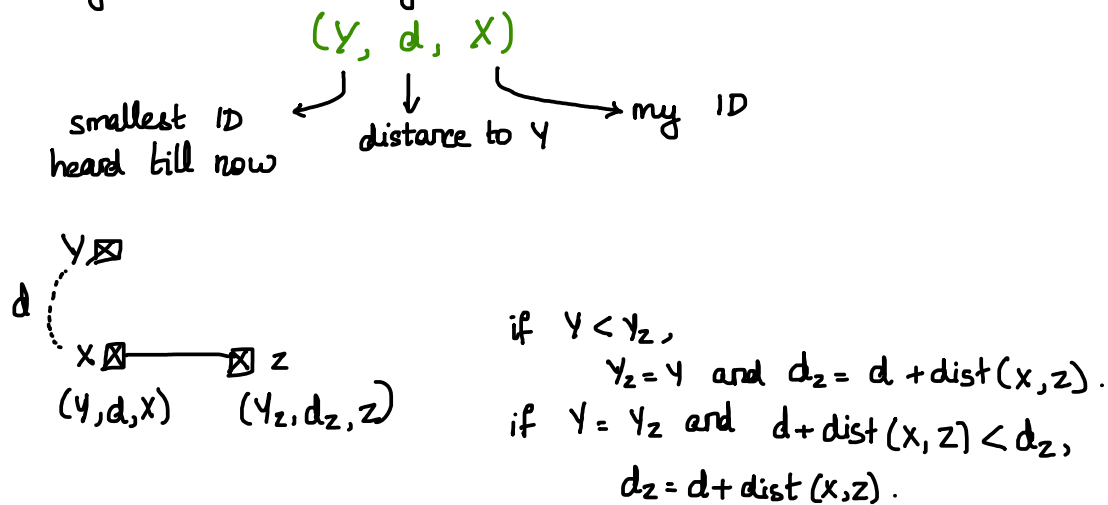 (Y, d, X)
smallest ID
heard till now
distance to Y
my ID
Y
d
X
z
(Y,d,X)
(Yz,dz,z)
if Y < Yz,
Yz = Y and dz = d + dist(x,z).
if Y = Yz and d + dist(x,z) < dz,
dz = d + dist(x,z).